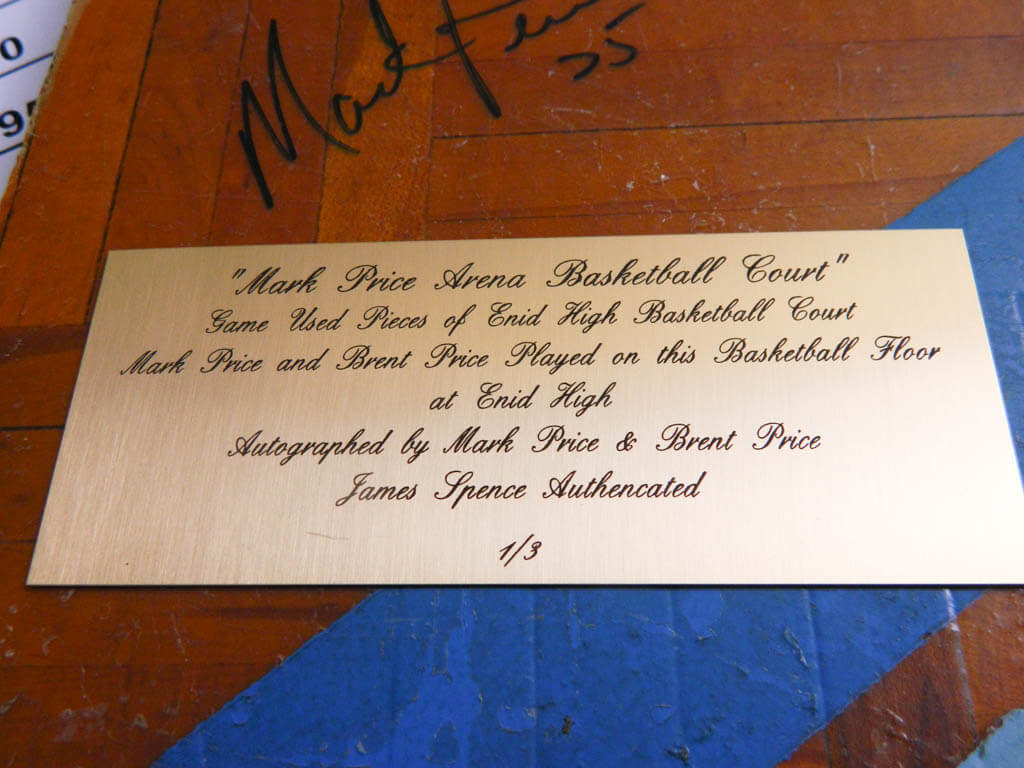 0
95
Mark Price
25
"Mark Price Arena Basketball Court"
Game Used Pieces of Enid High Basketball Court
Mark Price and Brent Price Played on this Basketball Floor
at Enid High
Autographed by Mark Price & Brent Price
James Spence Authencated
1/3